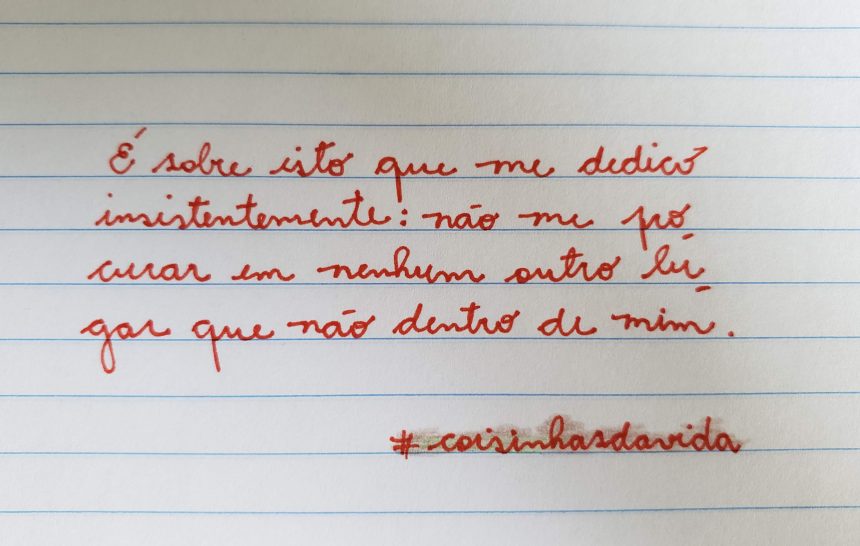 É sobre isto que me dedico
insistentemente: não me pro
curar em nenhum outro lu
gar que não dentro de mim.
#coisinhasdavida